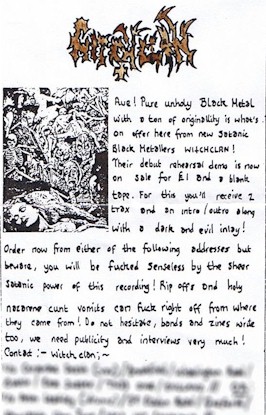 WITCHCLAN
Ave! Pure unholy Black Metal
with a ton of originallity is what's
on offer here from new satanic
Black Metallers WITCHCLAN!
Their debut rehearsal demo is now
on sale for £1 and a blank
tape. For this you'll receive 2
trax and an intro/outro along
with a dark and evil inlay!
Order now from either of the following addresses but
beware, you will be fucked senseless by the sheer
Satanic power of this recording! Rip offs and holy
nazarene cunt vomits can fuck right off from where
they came from! Do not hesitate, bands and zines wride
too, we need publicity and interviews very much!
Contat:- Witchclan;-